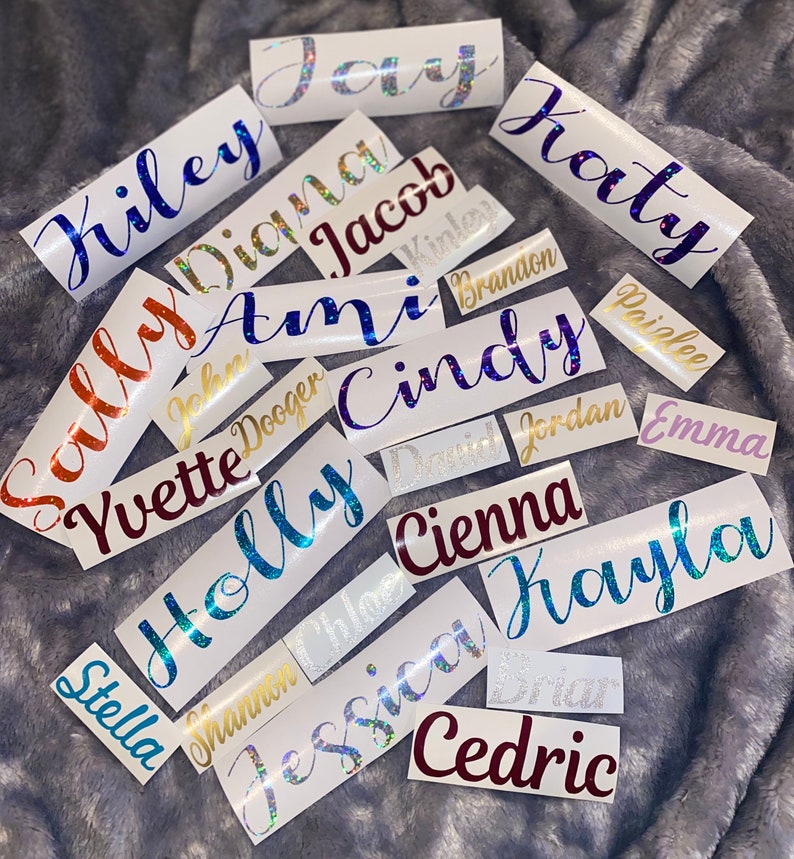 Jay
Kiley
Katy
Diana
Jacob
Kinley
Brandon
Ami
Paizlee
Sally
Cindy
John
Dooger
Jordan
Emma
David
Yvette
Cienna
Holly
Kayla
Chloe
Stella
Shannon
Jessica
Briar
Cedric